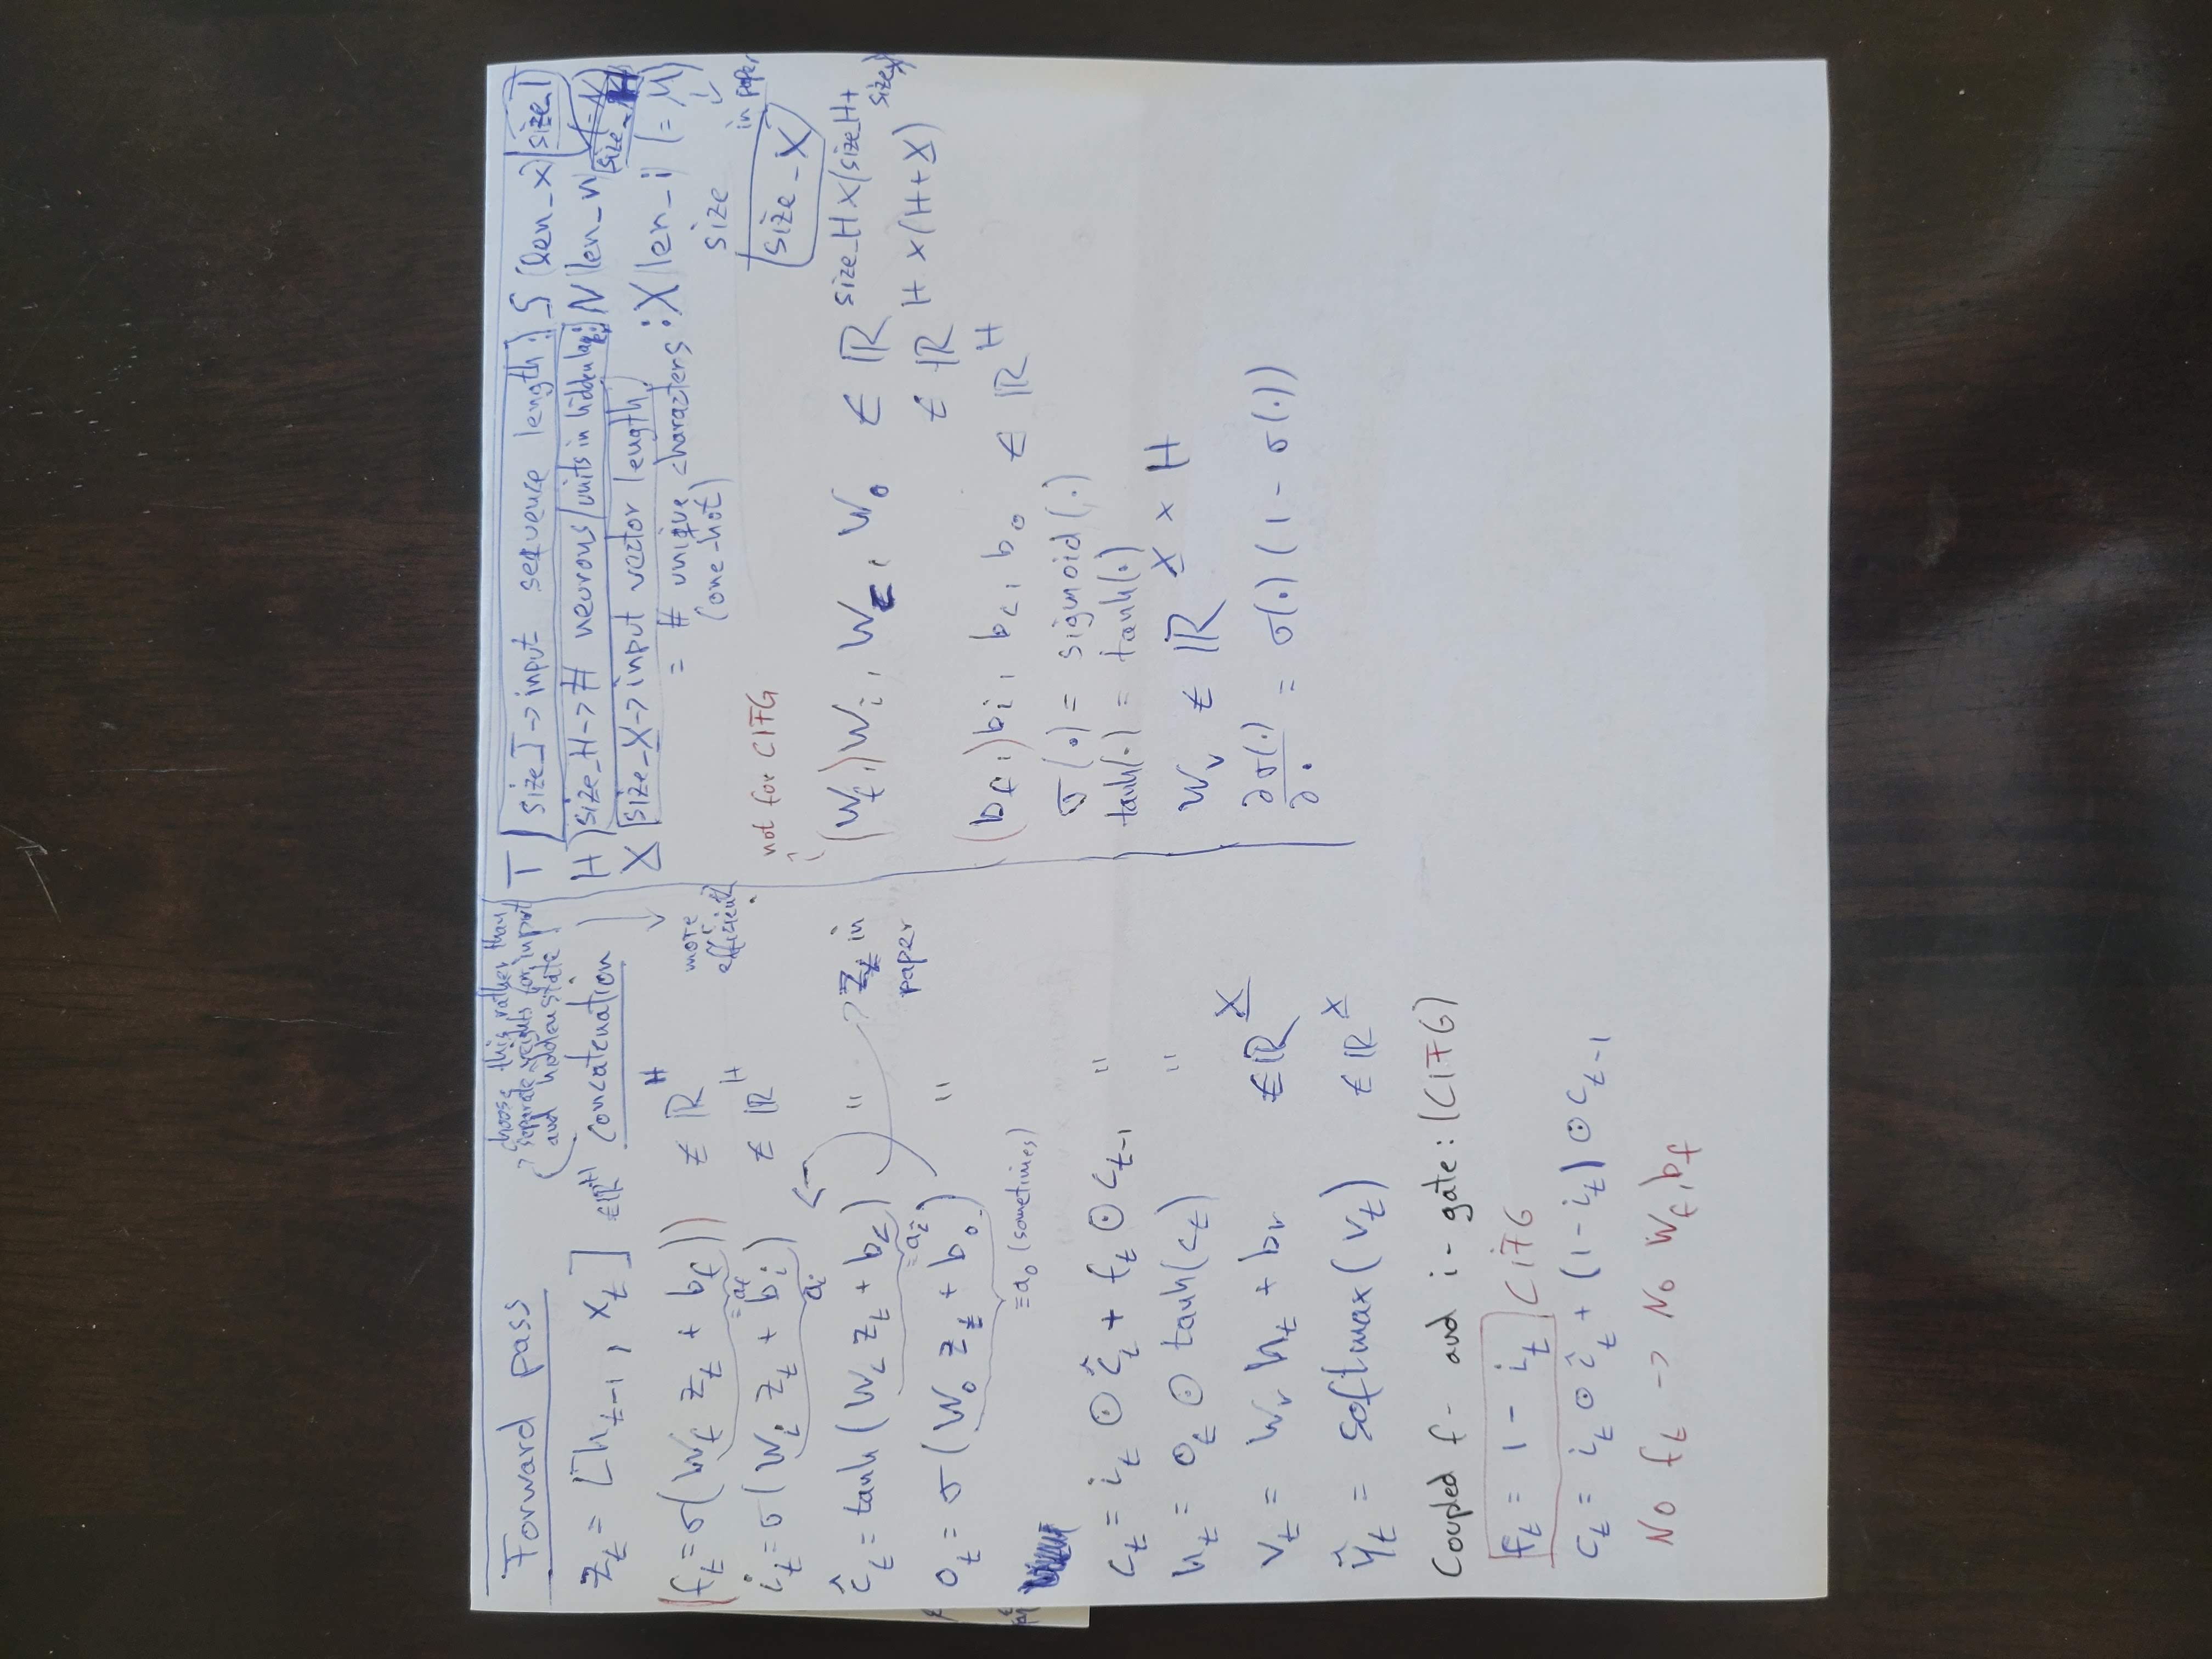 Forward pass
choose this rather than
separate weights for input
and hidden state
z_t = [h_{t-1}, x_t] concatenation
more
efficient
(f_t = σ(W_f z_t + b_f)) ∈ ℝ^H
≡ a_f
i_t = σ(W_i z_t + b_i) ∈ ℝ^H
a_i
ĉ_t = tanh(W_c z_t + b_c) "
z_t in
paper
o_t = σ(W_o z_t + b_o) "
≡ a_o (sometimes)
c_t = i_t ⊙ ĉ_t + f_t ⊙ c_{t-1} "
h_t = o_t ⊙ tanh(c_t) "
v_t = W_v h_t + b_v ∈ ℝ^X
ŷ_t = softmax(v_t) ∈ ℝ^X
Coupled f- and i-gate: (CIFG)
f_t = 1 - i_t CIFG
c_t = i_t ⊙ î_t + (1 - i_t) ⊙ c_{t-1}
No f_t -> No W_f, b_f
T size_T -> input sequence length: S (len_x) size_T
H size_H -> # neurons/units in hidden lay: N len_n (=N)
size_H
X size_X -> input vector length
= # unique characters : X len_i (= M)
(one-hot) size in paper
size_X
not for CIFG
(W_f,) W_i, W_c, W_o ∈ ℝ^{size_H x (size_H + size_X)}
∈ ℝ^{H x (H+X)}
(b_f,) b_i, b_c, b_o ∈ ℝ^H
σ(.) = sigmoid(.)
tanh(.) = tanh(.)
W_v ∈ ℝ^{X x H}
∂σ(.)/∂. = σ(.)(1 - σ(.))